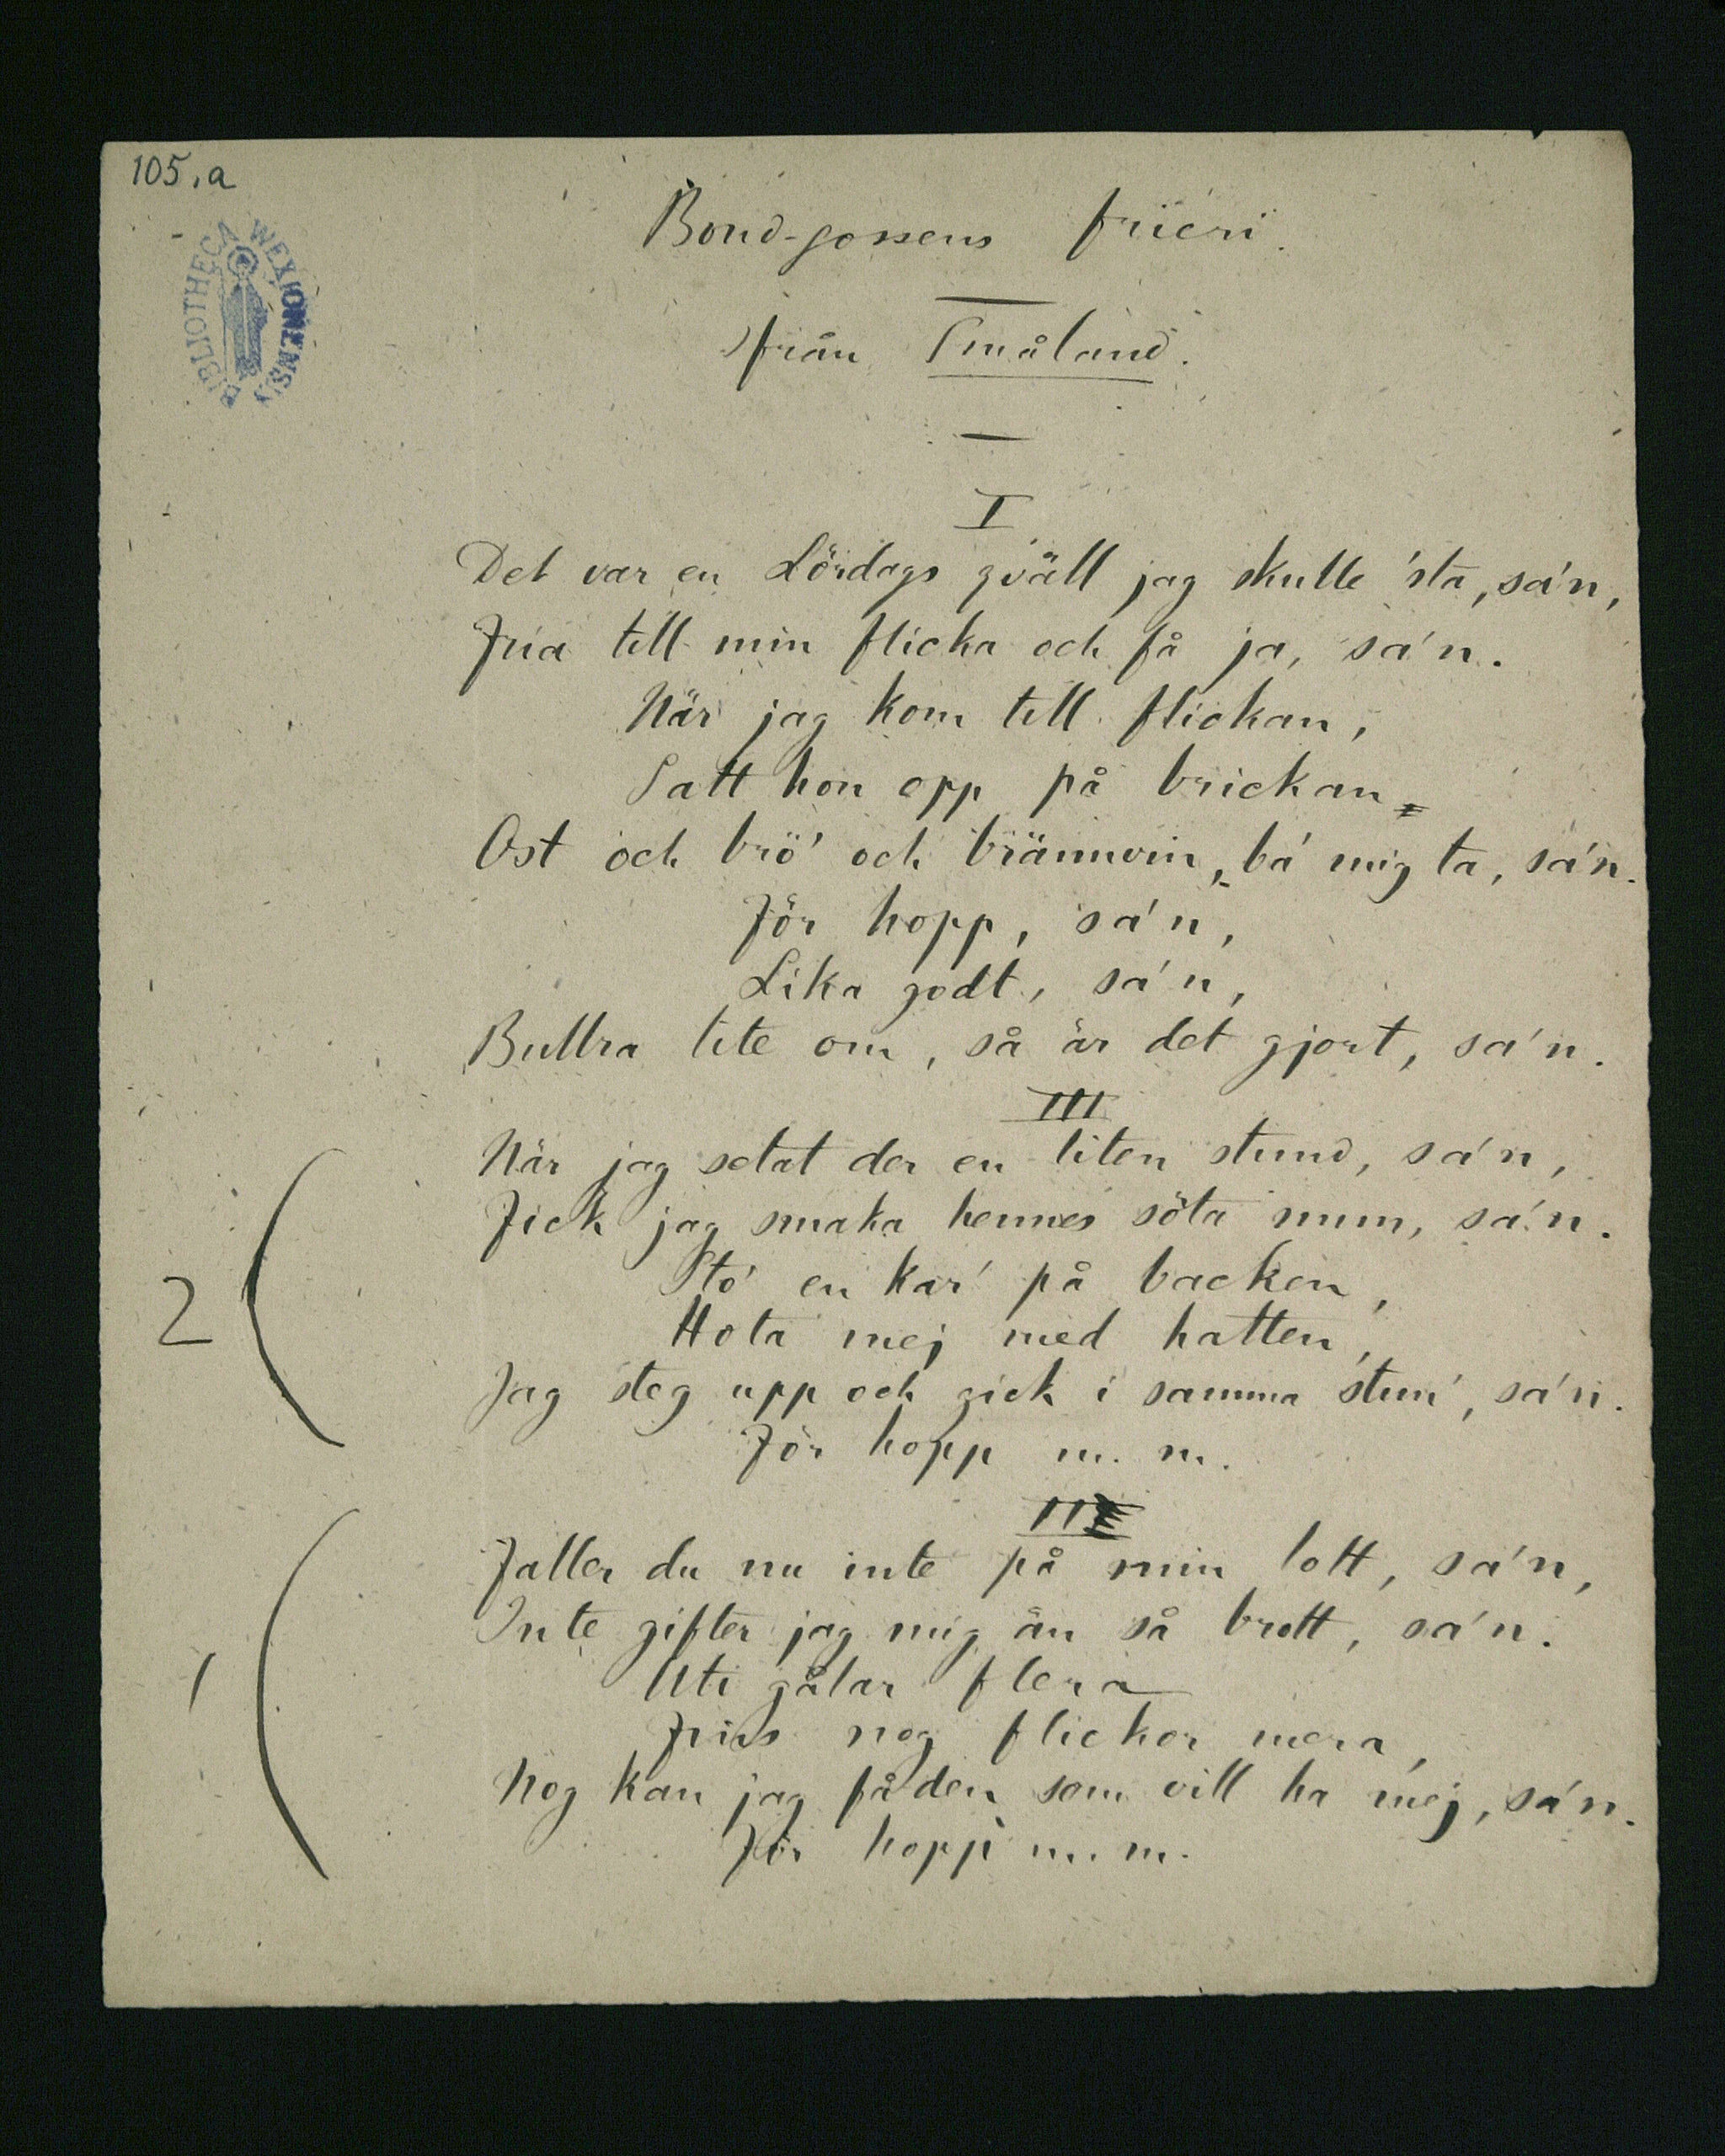 105.a
BIBLIOTHECA WEXIONENSIS
Bond-gossens frieri.
från Småland.
I
Det var en Lördags qväll jag skulle 'sta, sa'n,
Fria till min flicka och få ja, sa'n.
När jag kom till flickan,
Satt hon opp på brickan
Ost och brö' och brännvin, ba' mig ta, sa'n.
För hopp, sa'n,
Lika godt, sa'n,
Bullra lite om, så är det gjort, sa'n.
III
När jag setat der en liten stund, sa'n,
Fick jag smaka hennes söta mun, sa'n.
2
Sto' en kar' på backen,
Hota mej med hatten,
Jag steg upp och gick i samma stun', sa'n.
För hopp m. m.
III
Faller du nu inte på min lott, sa'n,
Inte gifter jag mig än så brott, sa'n.
1
Uti gålar flera
Fins nog flickor mera,
Nog kan jag få den som vill ha mej, sa'n.
För hopp m. m.